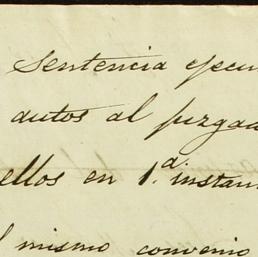 Sentencia ejecu
autos al juzgad
ellos en 1.a instan
l mismo convenio